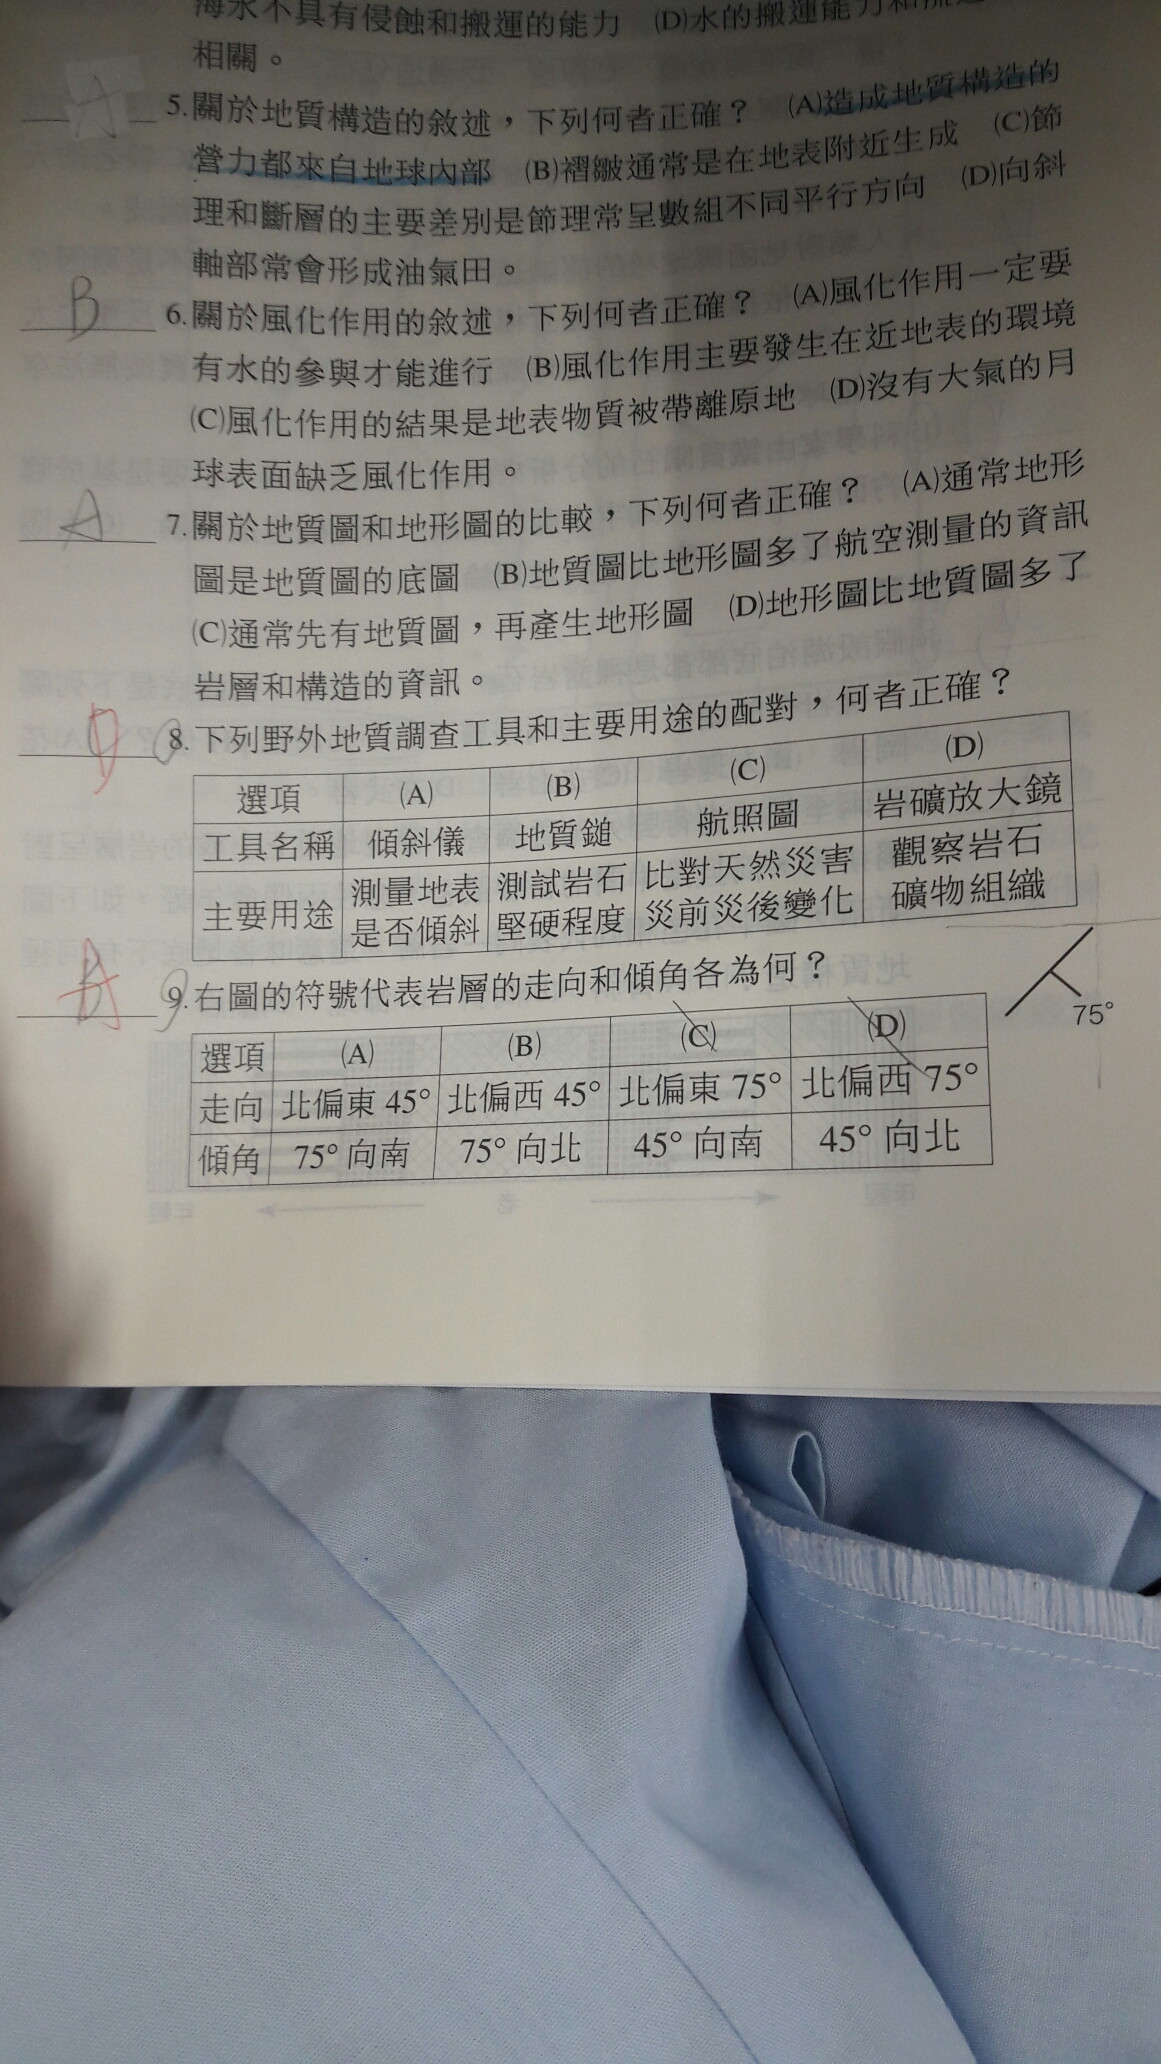 海水不具有侵蝕和搬運的能力 (D)水的搬運能力和流速
相關。
A 5.關於地質構造的敘述，下列何者正確？ (A)造成地質構造的
營力都來自地球內部 (B)褶皺通常是在地表附近生成 (C)節
理和斷層的主要差別是節理常呈數組不同平行方向 (D)向斜
軸部常會形成油氣田。
B 6.關於風化作用的敘述，下列何者正確？ (A)風化作用一定要
有水的參與才能進行 (B)風化作用主要發生在近地表的環境
(C)風化作用的結果是地表物質被帶離原地 (D)沒有大氣的月
球表面缺乏風化作用。
A 7.關於地質圖和地形圖的比較，下列何者正確？ (A)通常地形
圖是地質圖的底圖 (B)地質圖比地形圖多了航空測量的資訊
(C)通常先有地質圖，再產生地形圖 (D)地形圖比地質圖多了
岩層和構造的資訊。
D 8.下列野外地質調查工具和主要用途的配對，何者正確？
選項 (A) (B) (C) (D)
工具名稱 傾斜儀 地質鎚 航照圖 岩礦放大鏡
主要用途 測量地表 測試岩石 比對天然災害 觀察岩石
是否傾斜 堅硬程度 災前災後變化 礦物組織
A 9.右圖的符號代表岩層的走向和傾角各為何？
75°
選項 (A) (B) (C) (D)
走向 北偏東 45° 北偏西 45° 北偏東 75° 北偏西 75°
傾角 75° 向南 75° 向北 45° 向南 45° 向北